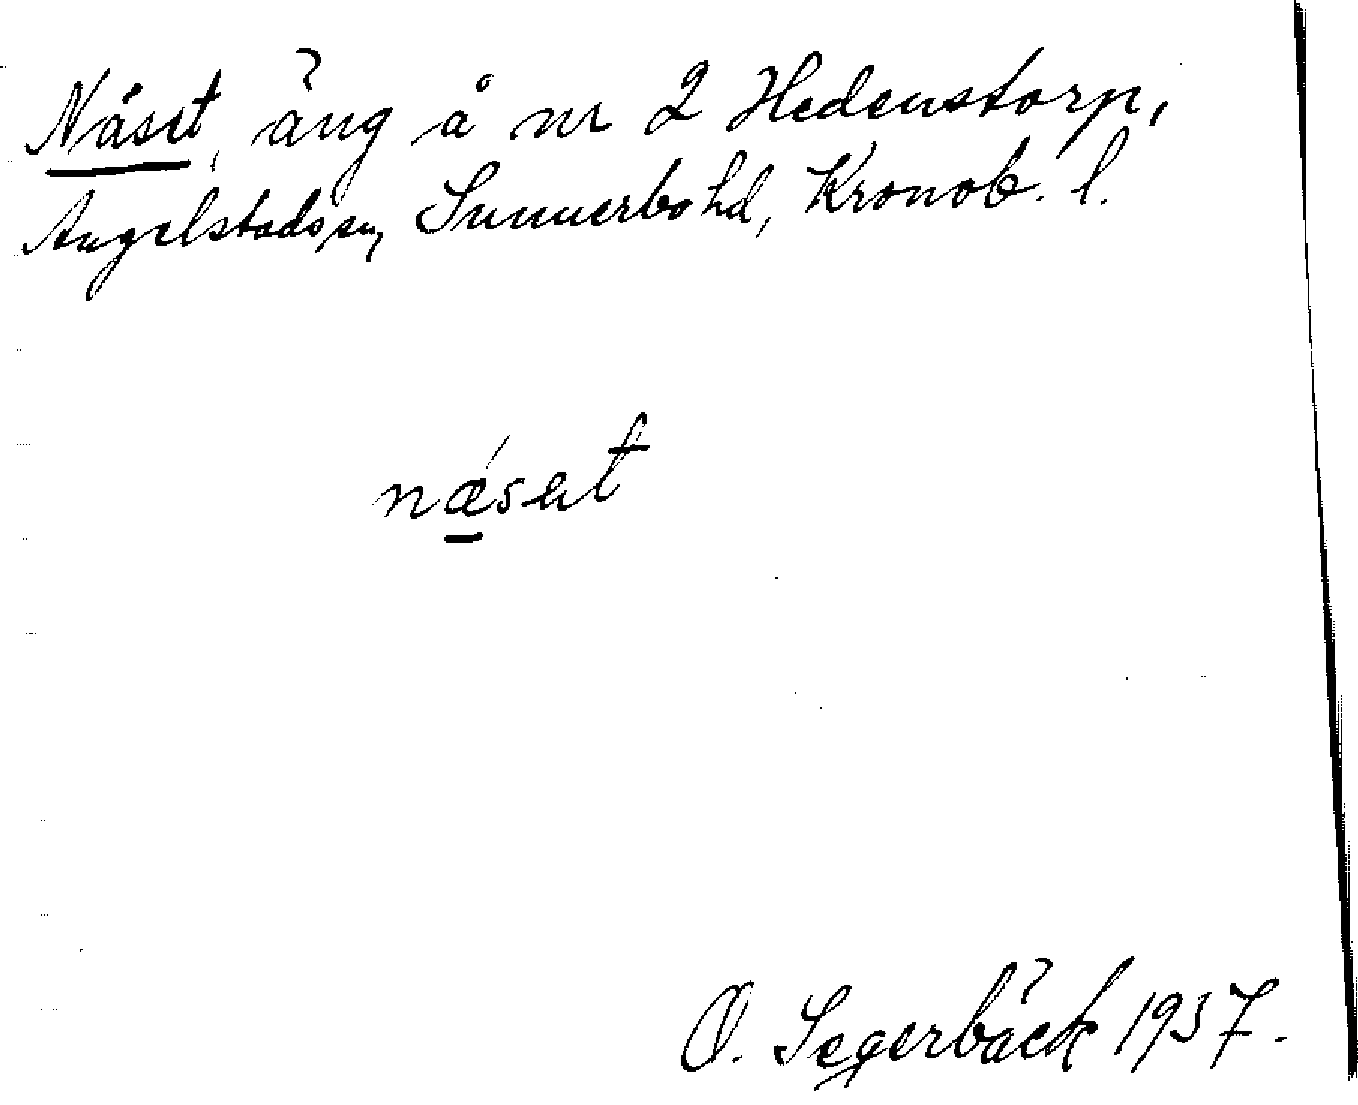 Näset, äng å nr 2 Hedenstorp,
Angelstads sn, Sunnerbo hd, Kronob. l.
næsat
O. Segerbäck 1937.